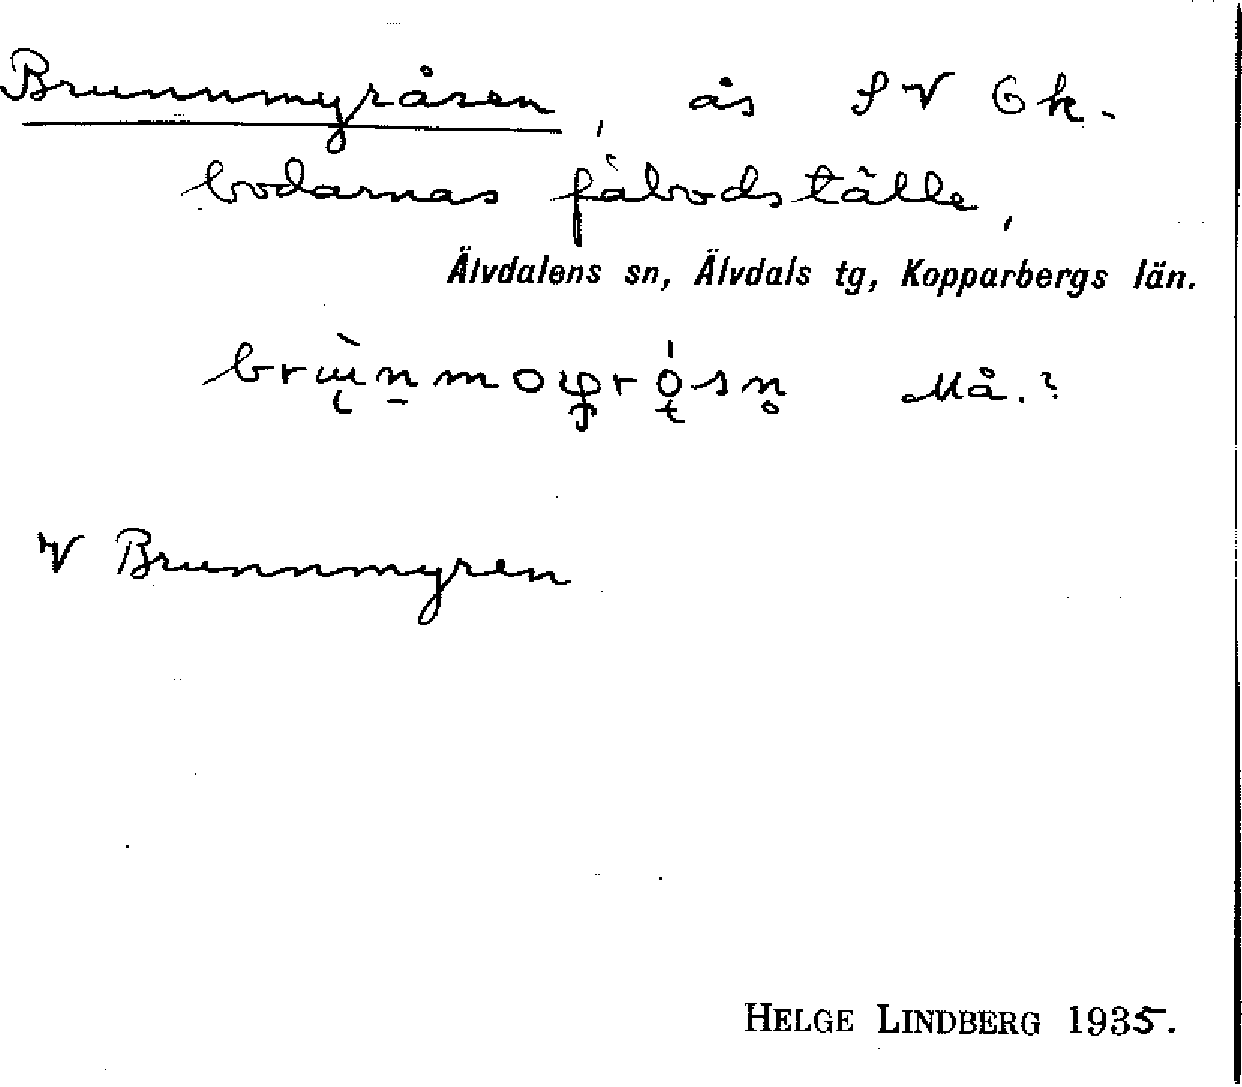 Brunnmyråsen, ås SV Ek-
bodarnas fäbodställe,
Älvdalens sn, Älvdals tg, Kopparbergs län.
Må.?
V Brunnmyren
HELGE LINDBERG 1935.